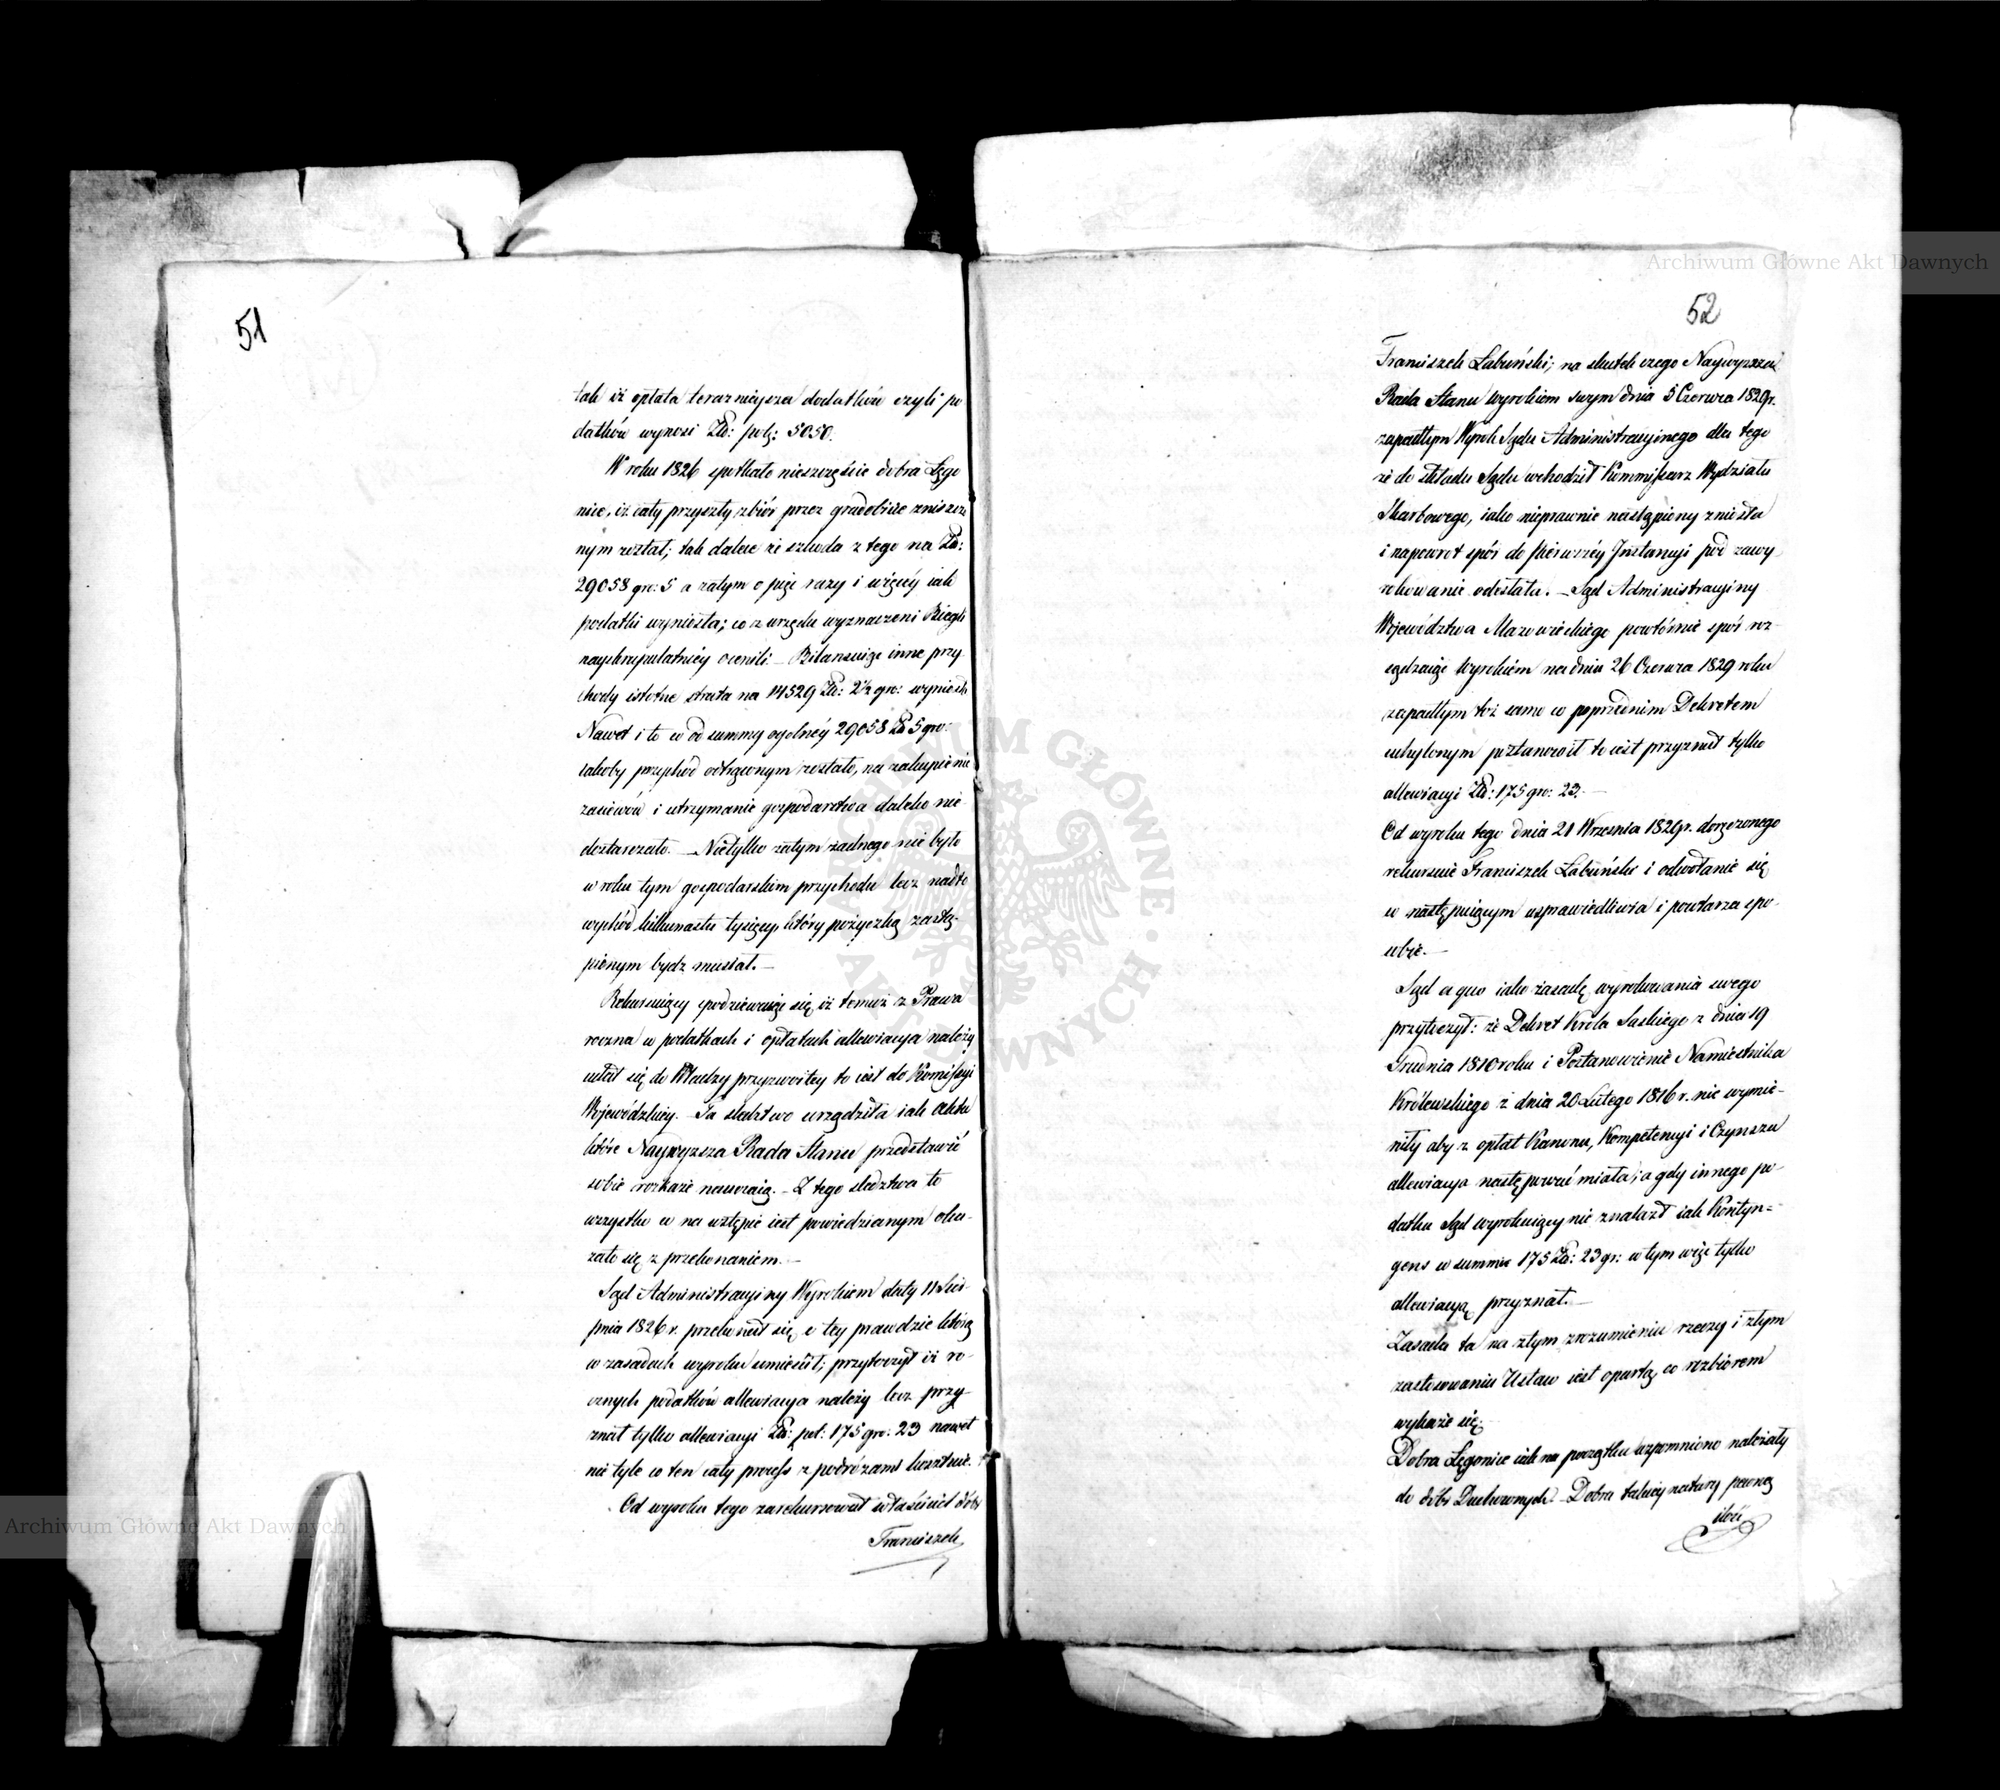 51
tak iż opłata teraznieysza dodatków czyli po
datków wynosi Zł: pol: 5050.
W roku 1826 spotkało nieszczęście dobra Łęgo
nice, iż cały przyszły zbiór przez gradobicie zniszczo
nym został; tak dalece że szkoda z tego na Zł:
29058 gro: 5 a zatym o pięć razy i więcéy iak
podatki wyniosła; co z urzędu wyznaczeni Biegli
nayskrupulatniéy ocenili. – Bilansuiąc inne przy-
chody istotne strata na 14529 Zł: 2½ gro: wyniesła
Nawet i to co od summy ogolnéy 29058 Zł 5 gro:
iakoby przychod odtrąconym zostało, na zakupienie
zasiewów i utrzymanie gospodarstwa daleko nie
dostarczało. – Nietylko zatym żadnego nie było
w roku tym gospodarskim przychodu lecz nadto
wychód kilkunastu tysięcy, który pożyczką zastą-
pionym bydz musiał. –
Rekursuiący spodziewaiąc się, iż temuż z Prawa
roczna w podatkach i opłatach allewiacya należy
udał się do Władzy przyzwoitey to iest do Kommissyi
Wojewódzkiey. – Ta sledztwo urządziła iak Akta
które Naywyzsza Rada Stanu przedstawić
sobie rozkaże nauczaią. – Z tego sledztwa to
wszystko co na wstępie iest powiedzianym oka-
zało się z przekonaniem. –
Sąd Administracyiny Wyrokiem daty 11 Sier-
pnia 1826 r. przekonał się o tey prawdzie którą
w zasadach wyroku umieścił; przytoczył iż ro-
cznych podatków allewiacya należy lecz przy-
znał tylko allewiacyi Zł: pol: 175 gro: 23 nawet
nie tyle co ten cały process z podróżami kosztuie.
Od wyroku tego zarekursował właściciel dóbr
Franciszek
52
Franciszek Łabuński; na skutek czego Naywyzsza
Rada Stanu wyrokiem swym dnia 5 Czerwca 1829 r.
zapadłym Wyrok Sądu Administracyinego dla tego
że do składu Sądu wchodził Kommissarz Wydziału
Skarbowego, iako nieprawnie nastąpiony zniosła
i napowrot spór do Pierwszéy Instancyi pod zawy-
rokowanie odesłała. – Sąd Administracyiny
Województwa Mazowieckiego powtórnie spór roz-
sądzaiąc Wyrokiem na dniu 26 Czerwca 1829 roku
zapadłym toż samo co poprzednim Dekretem
uchylonym postanowił to iest przyznał tylko
allewiacyi Zł: 175 gro: 23. –
Od wyroku tego dnia 21 Września 1829 r. doręczonego
rekursuie Franciszek Łabuński i odwołanie się
w następuiącym usprawiedliwia i powtarza spo-
sobie. –
Sąd a quo iako zasadę wyrokowania swego
przytoczył: że Dekret Króla Saskiego z dnia 19
Grudnia 1810 roku i Postanowienie Namiestnika
Królewskiego z dnia 20 Lutego 1816 r. nie wymie-
niły aby z opłat Kanonu, Kompetencyi i Czynszu
allewiacya następować miała; a gdy innego po-
datku Sąd wyrokuiący nie znalazł iak Kontyn=
gens w summie 175 Zł: 23 gr: w tym więc tylko
allewiacyą przyznał. –
Zasada ta na złym zrozumieniu rzeczy i złym
zastosowaniu Ustaw iest oparta, co rozbiorem
wykaże się.
Dobra Łęgonice iak na początku wspomniono należały
do dóbr Duchownych. – Dobra takiey natury pewną
ilość
Archiwum Główne Akt Dawnych
Archiwum Główne Akt Dawnych
ARCHIWUM GŁÓWNE AKT DAWNYCH